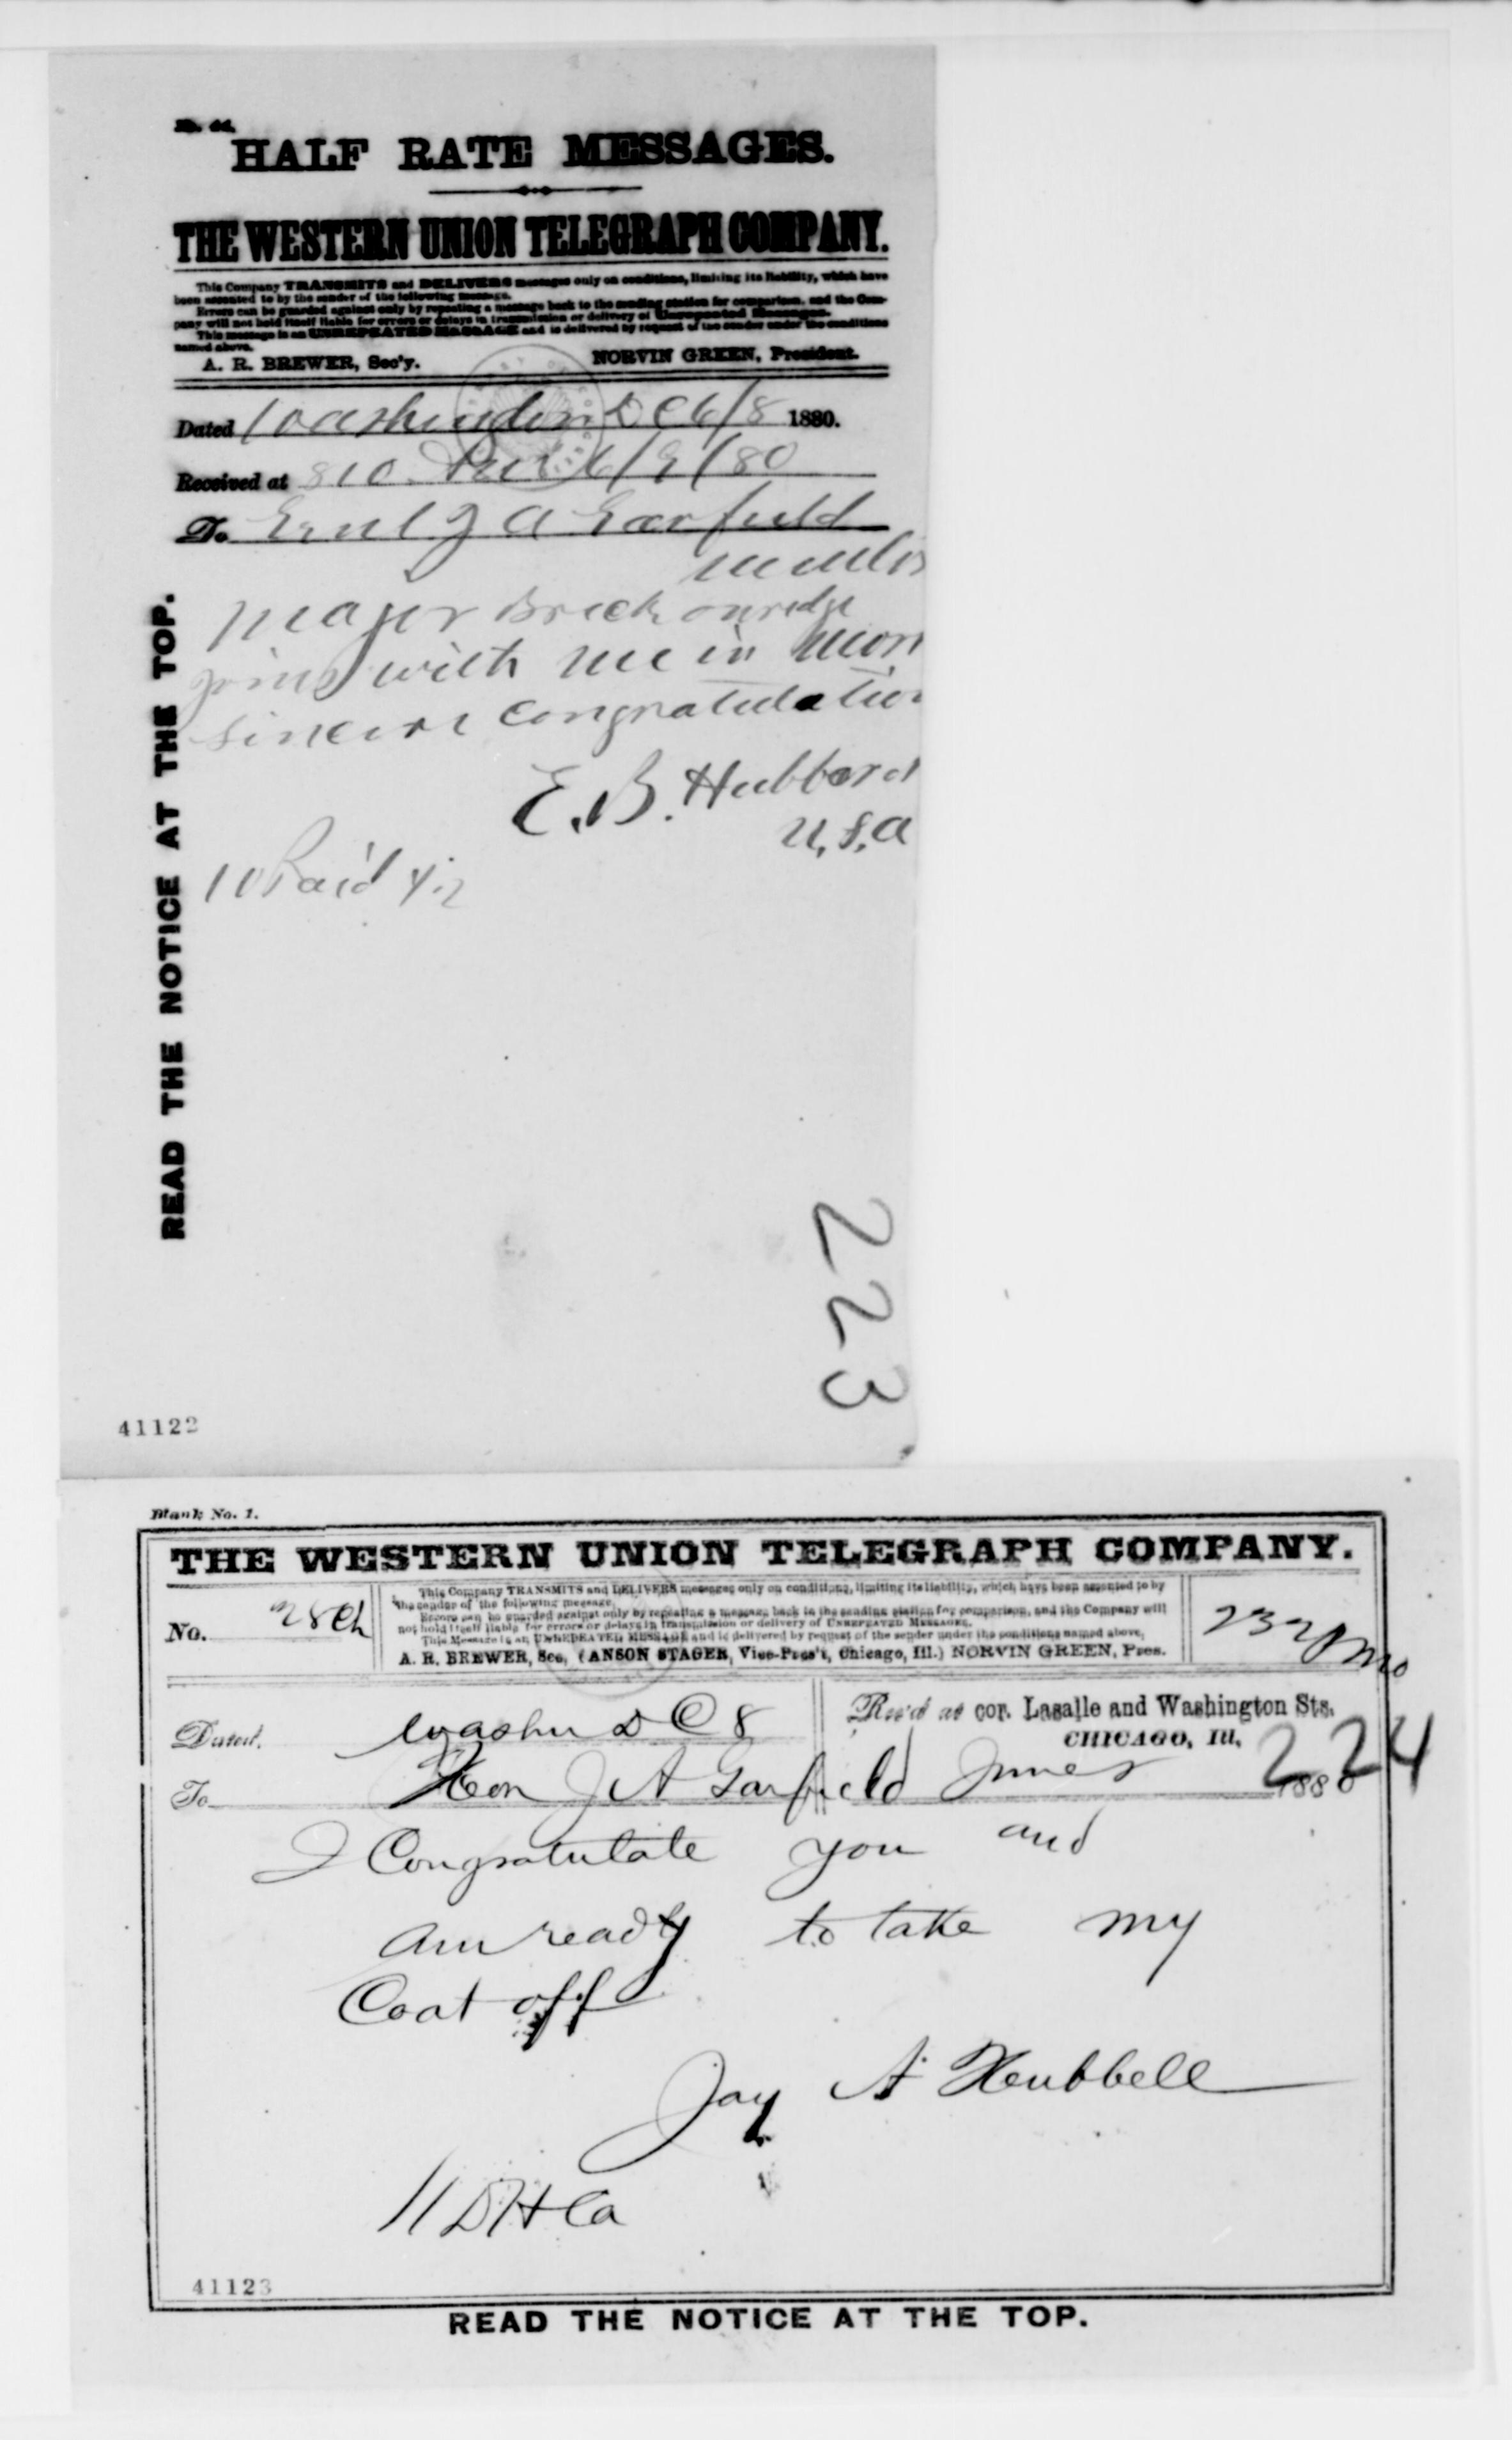 No. 44.
HALF RATE MESSAGES.
THE WESTERN UNION TELEGRAPH COMPANY.
This Company TRANSMITS and DELIVERS messages only on conditions, limiting its liability, which have
been assented to by the sender of the following message.
Errors can be guarded against only by repeating a message back to the sending station for comparison, and the Com-
pany will not hold itself liable for errors or delays in transmission or delivery of Unrepeated Messages.
This message is an UNREPEATED MESSAGE and is delivered by request of the sender under the conditions
named above.
A. R. BREWER, Sec'y. NORVIN GREEN, President.
Dated Washington D C 6/8 1880.
Received at 810 6/9/80
To Genl J A Garfield
Mentor
Major Breckenridge
joins with me in mos
sincere congratulation
E. B. Hubbard
U.S.A
10 Paid
READ THE NOTICE AT THE TOP.
223
41122
Blank No. 1.
THE WESTERN UNION TELEGRAPH COMPANY.
This Company TRANSMITS and DELIVERS messages only on conditions, limiting its liability, which have been assented to by
the sender of the following message.
Errors can be guarded against only by repeating a message back to the sending station for comparison, and the Company will
not hold itself liable for errors or delays in transmission or delivery of UNREPEATED MESSAGES.
This Message is an UNREPEATED MESSAGE and is delivered by request of the sender under the conditions named above.
A. R. BREWER, Sec. (ANSON STAGER, Vice-Pres't, Chicago, Ill.) NORVIN GREEN, Pres.
No. 28 Ch
Dated, Washn D C 8
Rec'd at cor. Lasalle and Washington Sts.
CHICAGO, Ill,
224
To Hon J A Garfield June 8 1880
I Congratulate you and
am ready to take my
Coat off
Jay A Hubbell
11 DH Ca
41123
READ THE NOTICE AT THE TOP.